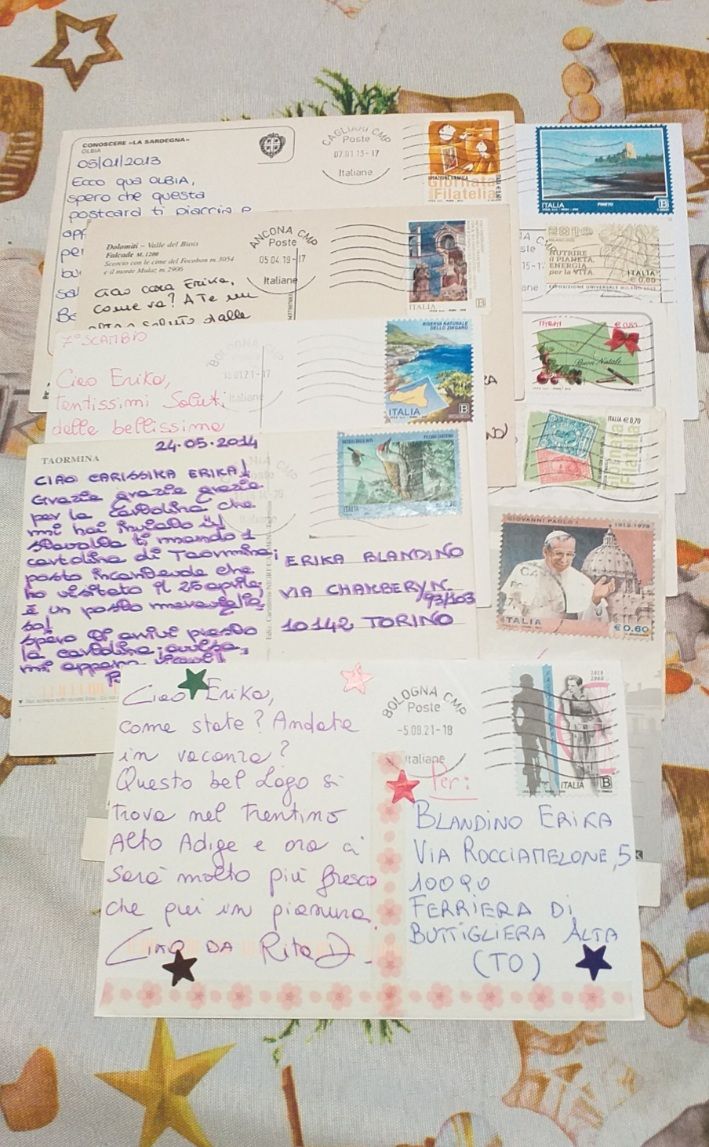 CONOSCERE «LA SARDEGNA»
OLBIA
05/01/2013
Ecco qua OLBIA,
spero che questa
postcard ti piaccia e
CAGLIARI CMP
Poste
07.01.13-17
Italiane
Giornata
Filatelia
ITALIA
B
Dolomiti - Valle del Biois
Falcade M. 1200
Scorcio con le cime del Focobon m. 3054
e il monte Mulaz m. 2906
Ciao cara Erika,
come va? A Te un
saluto dalle
ANCONA CMP
Poste
05.04.19-17
Italiane
ITALIA
B
NUTRIRE
IL PIANETA
ENERGIA
per la VITA
ITALIA
€ 0,80
ESPOSIZIONE UNIVERSALE MILANO 2015
7° SCAMBIO
Ciao Erika,
tantissimi Saluti
delle bellissime
BOLOGNA CMP
Italiane
RISERVA NATURALE
DELLO ZINGARO
ITALIA
B
Buon Natale
TAORMINA
24.05.2014
CIAO CARISSIKA ERIKA!
Grazie grazie grazie
per la cartolina che
mi hai inviato
stavolta ti mando 1
cartolina di Taormina;
posto incantevole che
ho visitato il 25 aprile,
è un posto
Spero ti arrivi presto
la cartolina;
mi appena
ITALIA
ERIKA BLANDINO
VIA CHAKBERY N.
93/103
10142 TORINO
ITALIA € 0,70
Filatelia
GIOVANNI PAOLO I
1912-1978
ITALIA
€ 0,60
Ciao Erika,
come state? Andate
in vacanza?
Questo bel Lago si
trova nel Trentino
Alto Adige e ora ci
sarà molto più fresco
che qui in pianura.
Ciao DA Rita D.
BOLOGNA CMP
Poste
-5.08.21-18
Italiane
ITALIA
B
Per:
BLANDINO ERIKA
VIA ROCCIAMELONE, 5
10090
FERRIERA DI
BUTTIGLIERA ALTA
(TO)